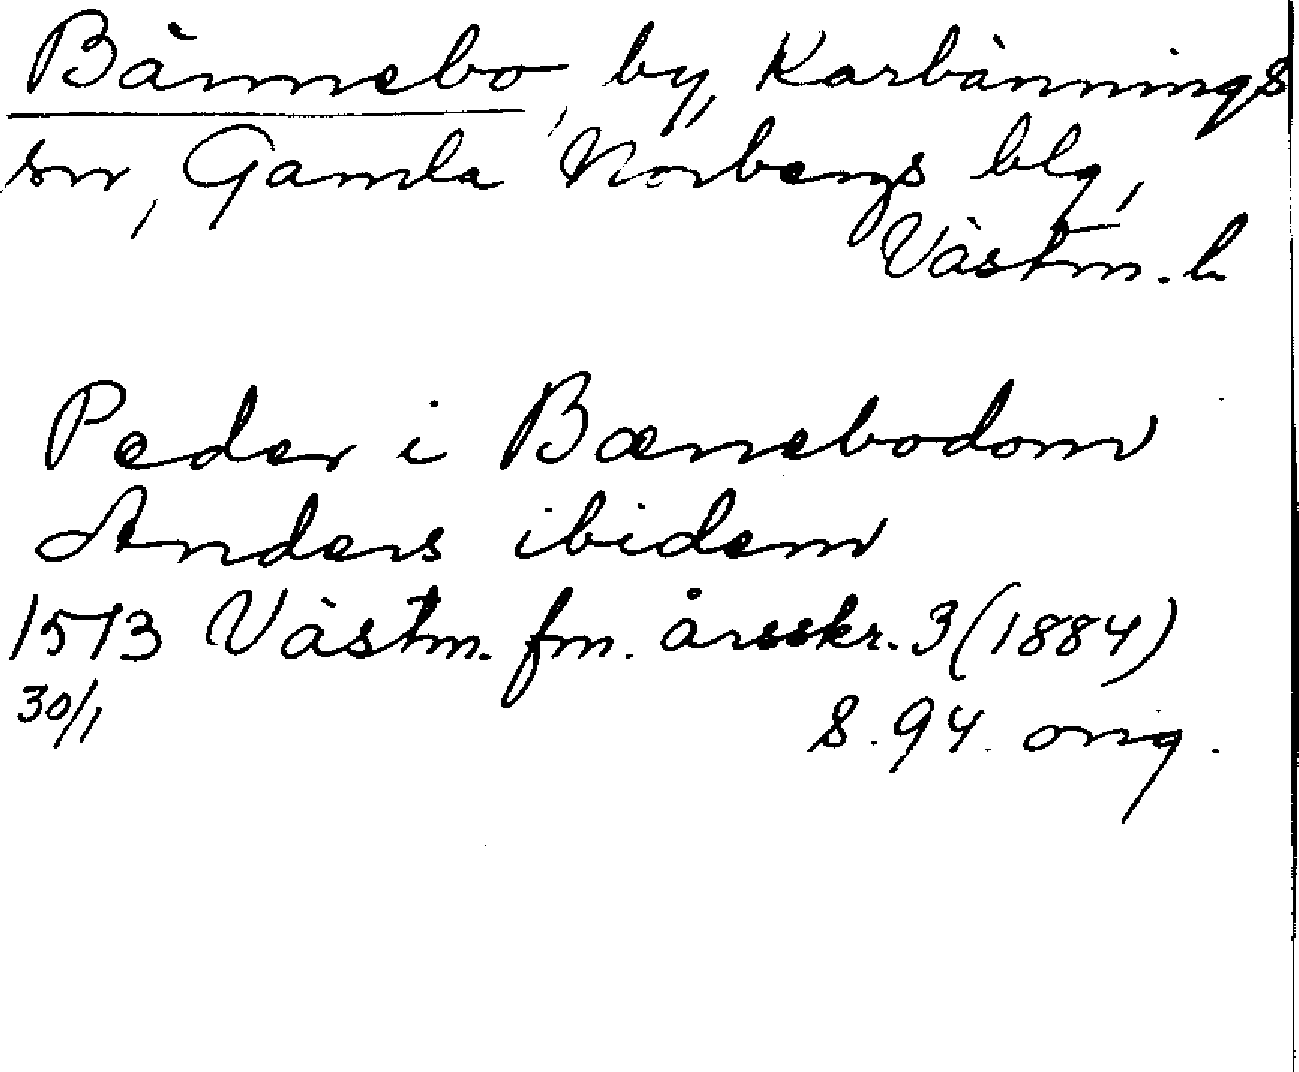 Bännebo, by, Karbännings
sn, Gamla Norbergs blg,
Västm. l.
Peder i Bænebodom
Anders ibidem
1513 Västm. fm. årsskr. 3 (1884)
30/1 s. 94. orig.